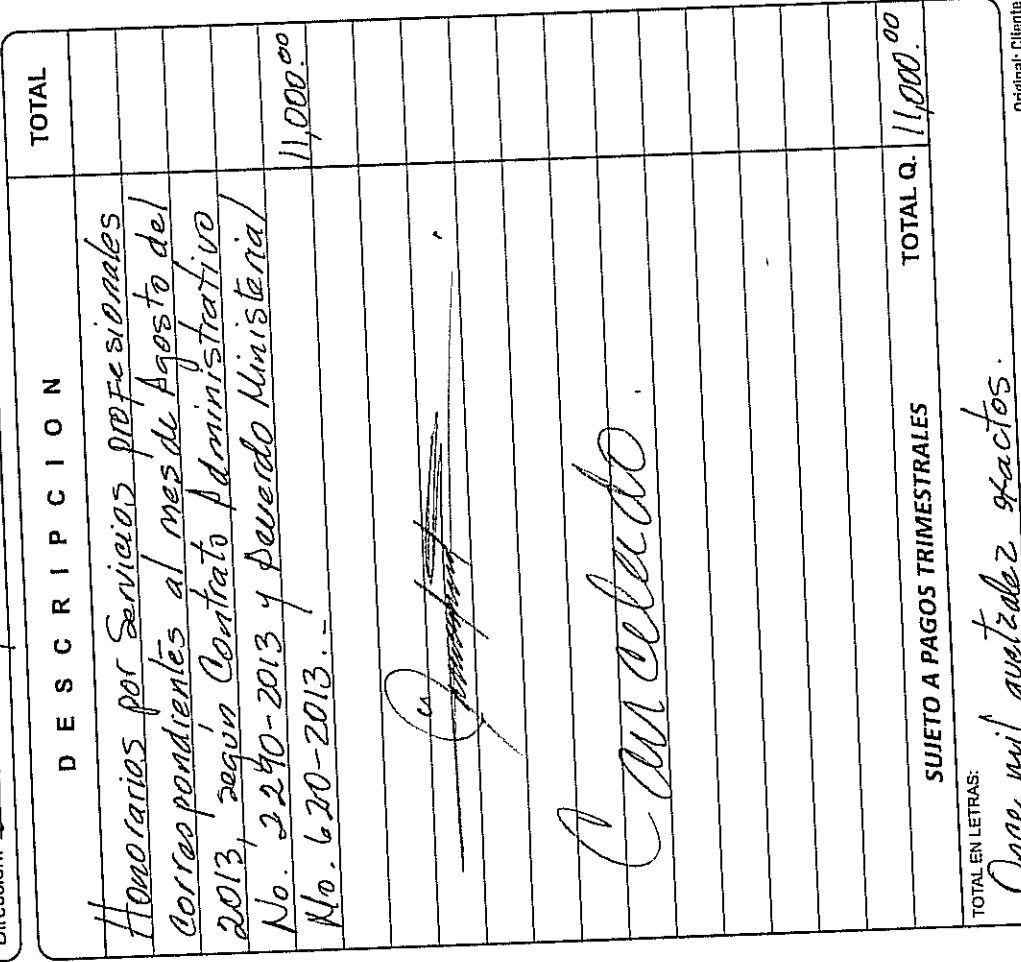 Dirección:
DESCRIPCION TOTAL
Honorarios por Servicios profesionales
correspondientes al mes de Agosto del
2013, según Contrato Administrativo
No. 2290-2013 y Acuerdo Ministerial 11,000.00
No. 620-2013.-
Cancelado
SUJETO A PAGOS TRIMESTRALES TOTAL Q. 11,000.00
TOTAL EN LETRAS:
Once mil quetzales exactos.
Original: Cliente